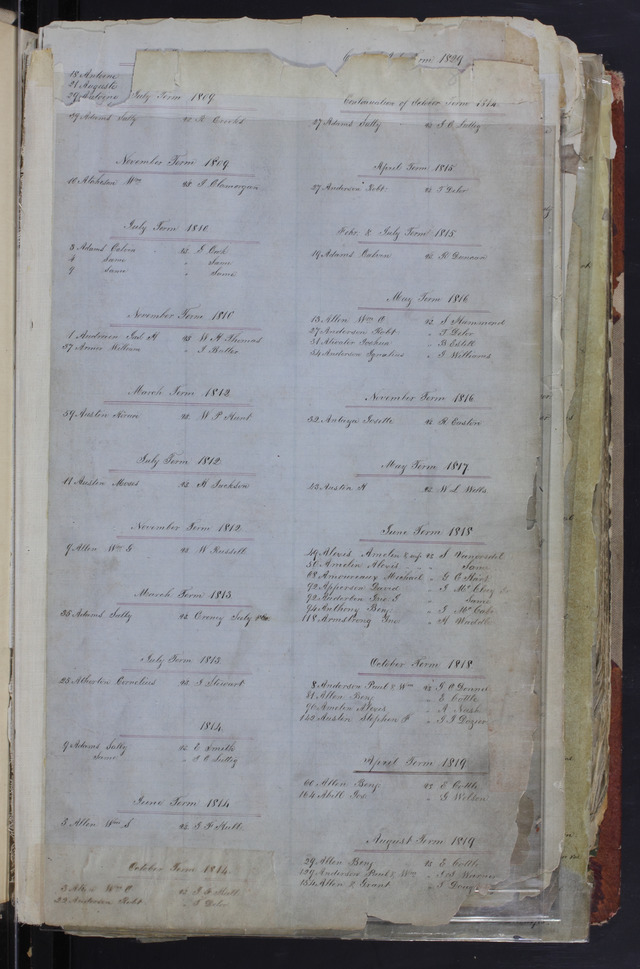 18 Antoine
21 Auguste
29
July Term 1809
39 Adams Sally vs R Crooks
November Term 1809
10 Atcheson Wm vs J Clamorgan
July Term 1810
3 Adams Calvin vs J Cook
4 Same " Same
9 Same " Same
November Term 1810
1 Anderson Jas H vs W H Thomas
37 Armer William " J Butler
March Term 1812
39 Austin Horace vs W P Hunt
July Term 1812
11 Austin Moses vs H Jackson
November Term 1812
9 Allen Wm G vs W Russell
March Term 1813
35 Adams Sally vs
July Term 1813
23 Atherton Cornelius vs J Stewart
1814
9 Adams Sally vs E Smith
Same "
June Term 1814
3 Allen Wm S vs
October Term 1814
3 Allen Wm O vs
32 Anderson Robt " T Deler
Term 1809
Continuation of October Term 1814
27 Adams Sally vs
April Term 1815
37 Anderson Robt vs T Deler
Febr. & July Term 1815
19 Adams Calvin vs R Duncan
May Term 1816
13 Allen Wm O vs S Hammond
27 Anderson Robt " T Deler
31 Atwater Joshua " B Estill
34 Anderson Ignatius " J Williams
November Term 1816
32 Antaya Josette vs R Easton
May Term 1817
43 Austin H vs W L Wells
June Term 1818
49 Alexis Amelin & wife vs J Vanorsdel
50 Amelin Alexis " Same
68 Amoureaux Michael "
92 Apperson David "
92 Anderson Jno J " Same
94 Anthony Benj "
118 Armstrong Jno " A Waddle
October Term 1818
8 Anderson Paul & Wm vs
81 Allen Benj " E Cottle
90 Amelin Alexis " A Nash
142 Austin Stephen F " J J Dozier
April Term 1819
60 Allen Benj vs E Cottle
104 Abell Jos " G Wilson
August Term 1819
29 Allen Benj vs E Cottle
129 Anderson Paul & Wm "
134 Allen & Grant "